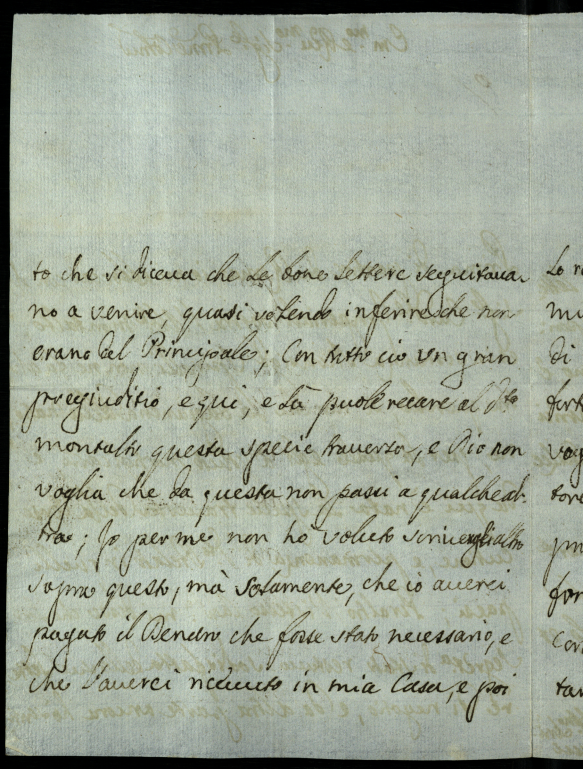 to che si diceua che le bone lettere seguitaua-
no a venire, quasi volendo inferire che non
erano del Principale; Con tutto ciò vn gran
pregiuditio, e qui, e là puole recare al d.to
montalto questa specie trauerso, e Dio non
voglia che da questa non passi a qualche al-
tra; Jo per me non ho voluto scriuergli altro
sopra questo, mà solamente, che io auerei
pagato il Denaro che fosse stato necessario, e
che l'auerei riceuuto in mia Casa, e poi
Lo
di